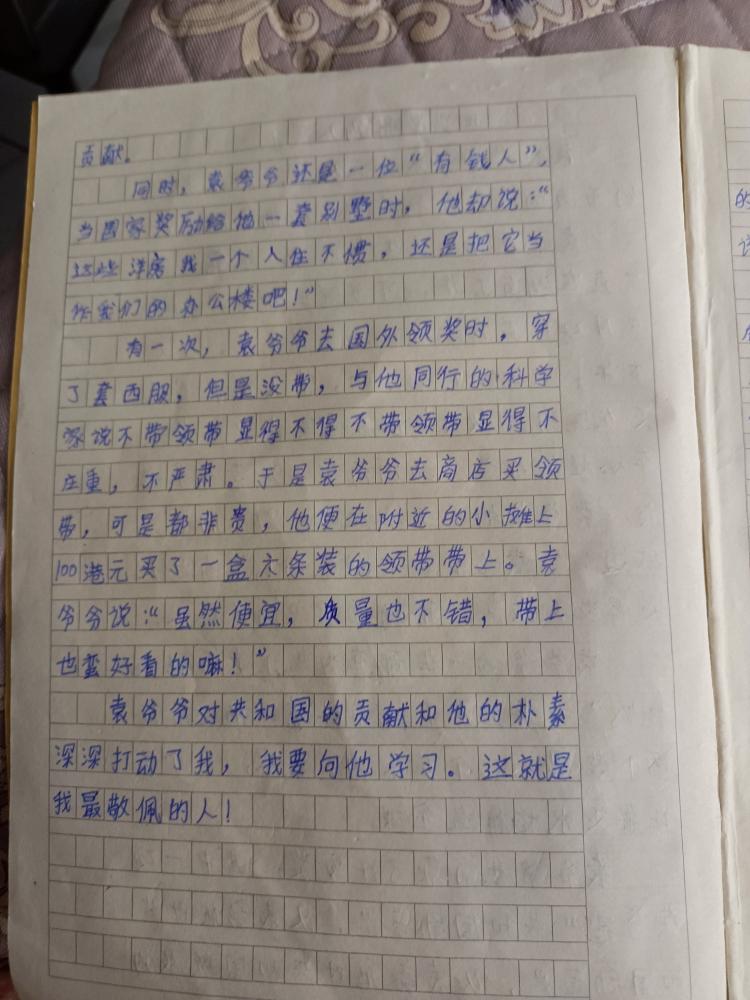 贡献。
同时，袁爷爷还是一位“有钱人”，
当国家奖励给他一套别墅时，他却说：“
这些洋房我一个人住不惯，还是把它当
作我们的办公楼吧！”
有一次，袁爷爷去国外领奖时，穿
了套西服，但是没带，与他同行的科学
家说不带领带显得不得不带领带显得不
庄重，不严肃。于是袁爷爷去商店买领
带，可是都非贵，他便在附近的小摊上
100港元买了一盒六条装的领带带上。袁
爷爷说：“虽然便宜，质量也不错，带上
也蛮好看的嘛！”
袁爷爷对共和国的贡献和他的朴素
深深打动了我，我要向他学习。这就是
我最敬佩的人！
的